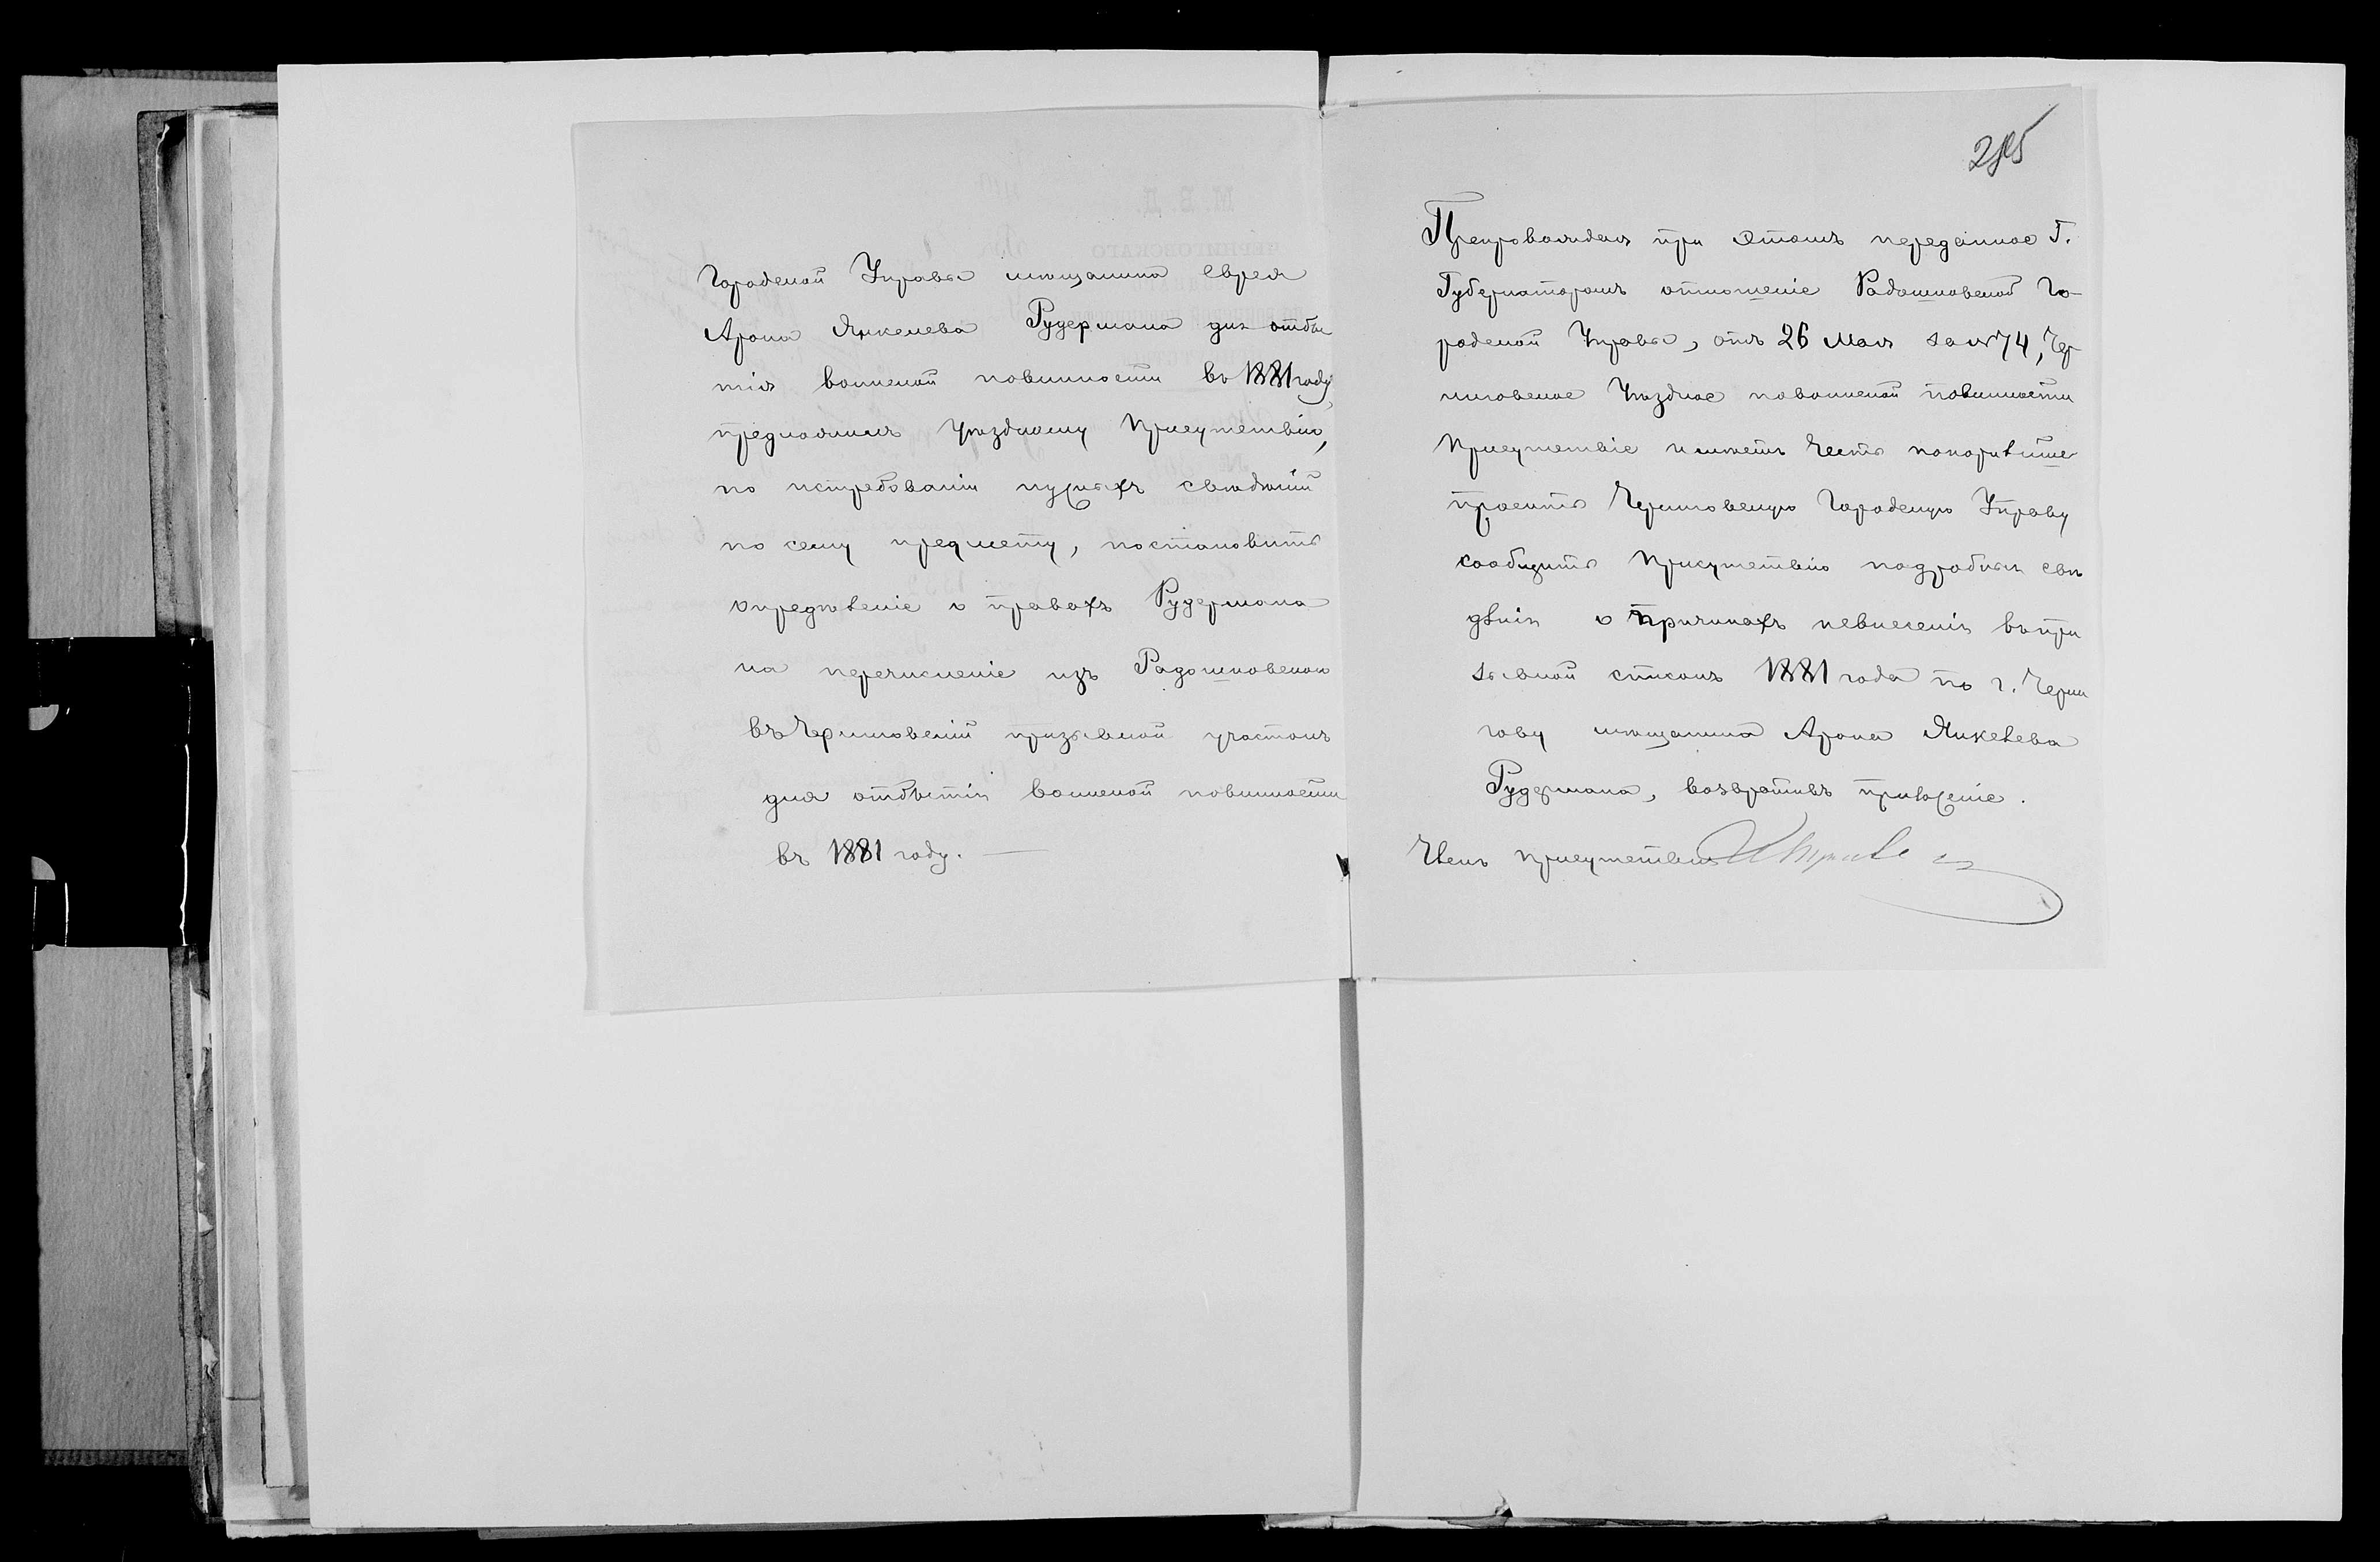 Городской Управы мѣщанина еврея
Арона Янкелева Рудермана для отбы
тія воинской повинности въ 1881 году,
предложилъ Уѣздному Присутствію,
по истребованіи нужныхъ свѣдѣній
по сему предмету, постановить
опредѣленіе о правахъ Рудермана
на перечисленіе изъ Радошковскаго
въ Черниговскій призывной участокъ
для отбытія воинской повинности
въ 1881 году.
Препровождая при этомъ переданное Г.
Губернаторомъ отношеніе Радошковской Го-
родской Управы, отъ 26 Мая за № 74, Чер
ниговское Уѣздное по воинской повинности
Присутствіе имѣетъ честь покорнѣйше
просить Черниговскую Городскую Управу
сообщить Присутствію подробныя свѣ
дѣнія о причинахъ невнесенія въ при
зывной списокъ 1881 года по г. Черни
гову мѣщанина Арона Янкелева
Рудермана, возвративъ приложеніе.
Членъ Присутствія